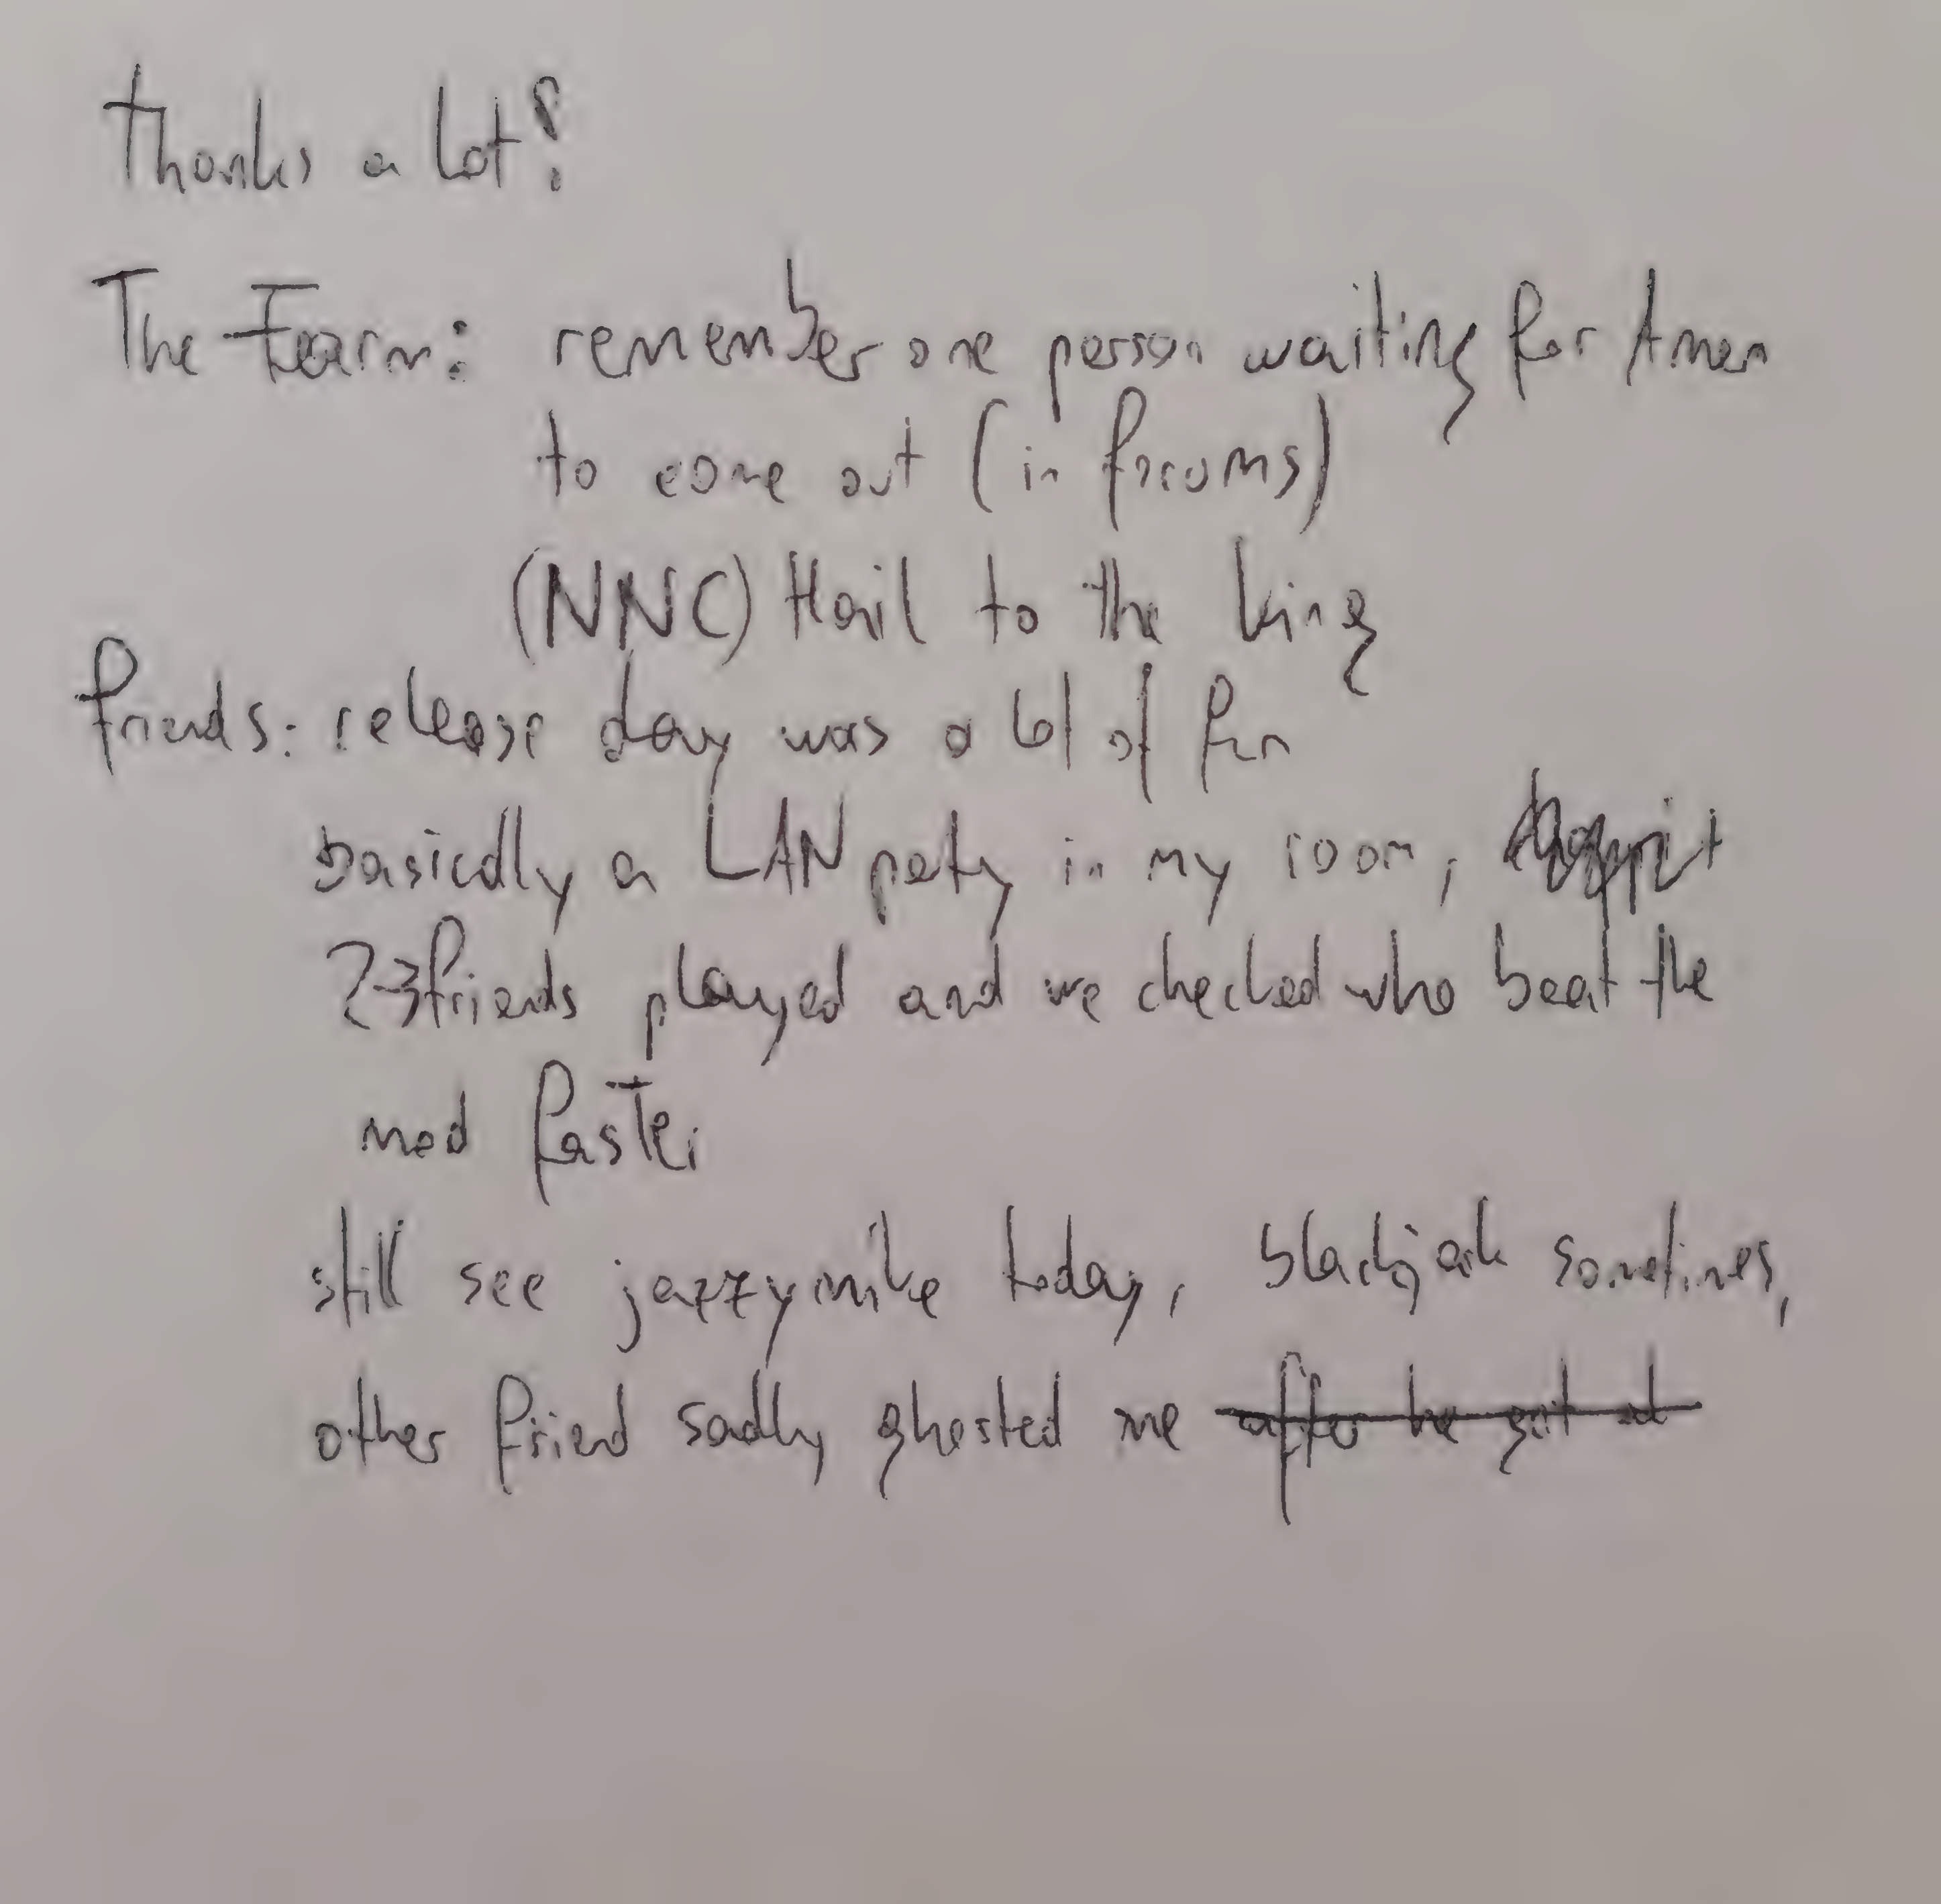 Thanks a lot!
The Farm: remember one person waiting for Amen
to come out (in forums)
(NNC) Hail to the King
friends: release day was a lot of fun
basically a LAN party in my room,
2-3 friends played and we checked who beat the
mod faster
still see jazzymike today, blackjack sometimes,
other friend sadly ghosted me after he got